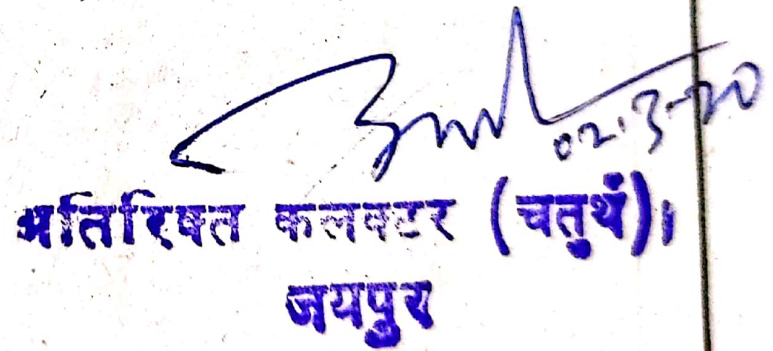 02.3.20
अतिरिक्त कलक्टर (चतुर्थ)।
जयपुर